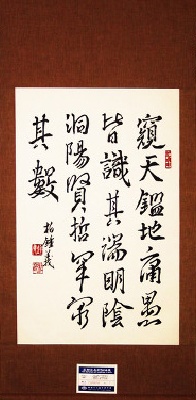 窺天鑑地庸愚
皆識其端明陰
洞陽賢哲罕窮
其數